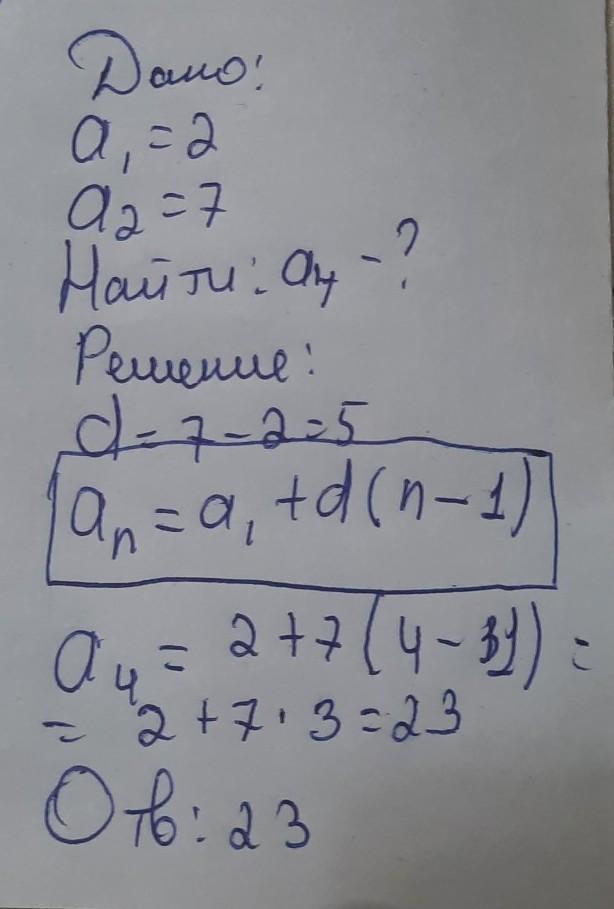 Дано:
a₁ = 2
a₂ = 7
Найти: a₄ - ?
Решение:
d = 7 - 2 = 5
aₙ = a₁ + d(n - 1)
a₄ = 2 + 7(4 - 1) =
= 2 + 7 · 3 = 23
Отв: 23